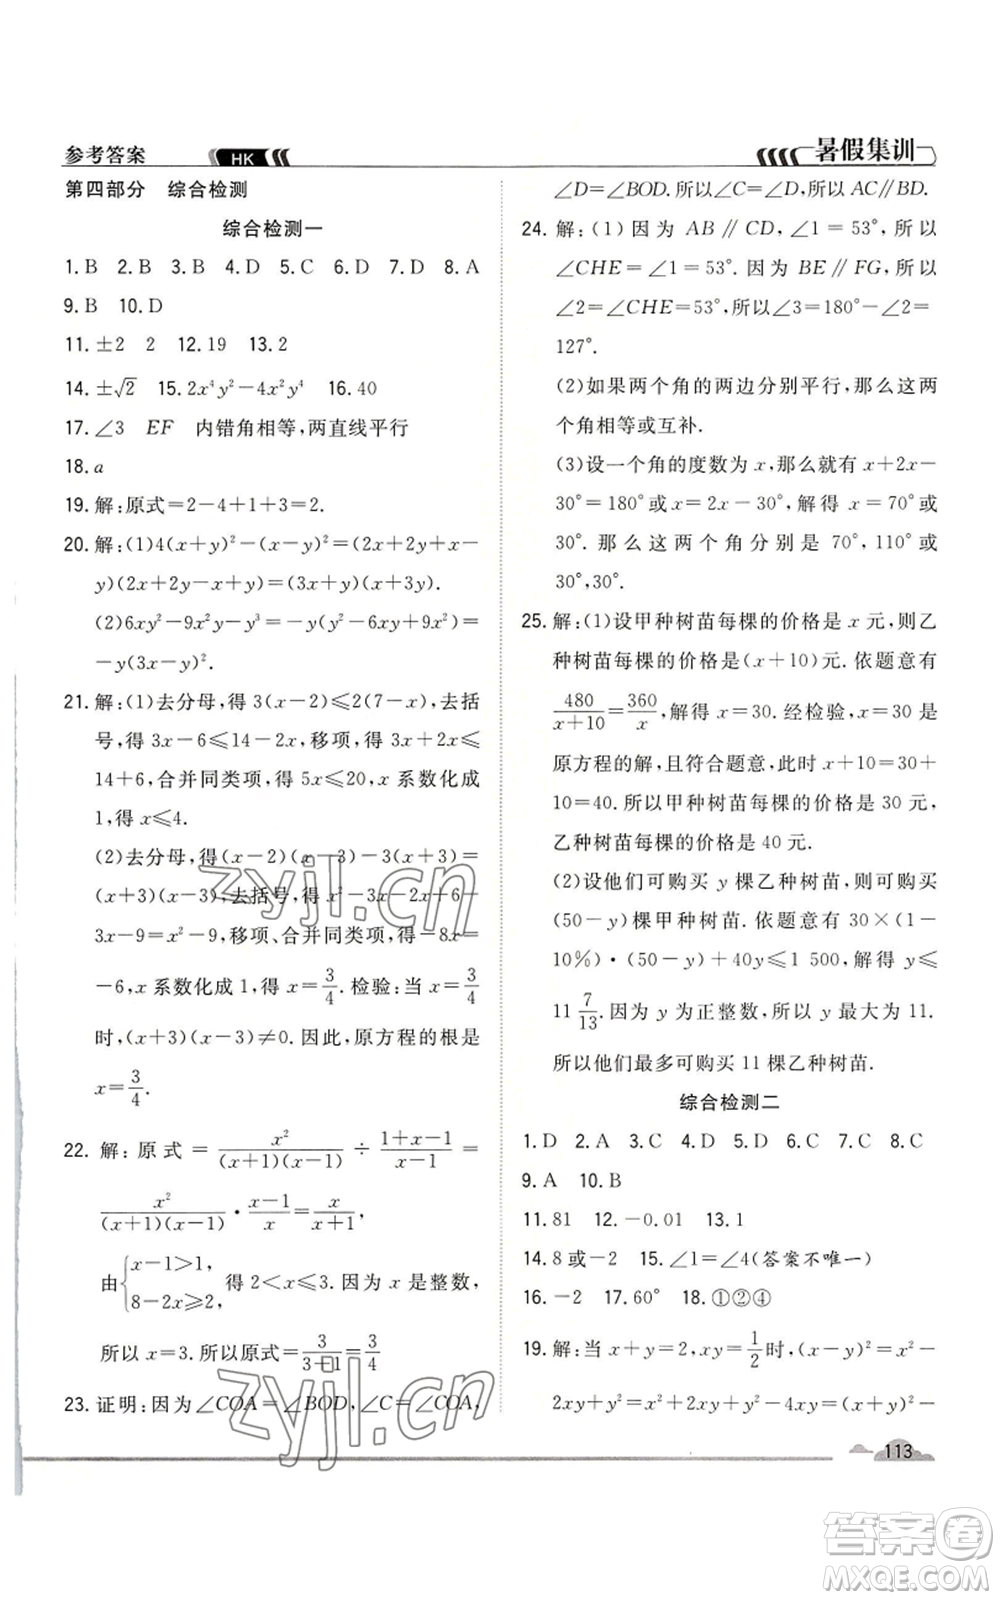 参考答案 HK 暑假集训
第四部分 综合检测
综合检测一
1. B 2. B 3. B 4. D 5. C 6. D 7. D 8. A
9. B 10. D
11. ±2 2 12. 19 13. 2
14. ±√2 15. 2x⁴y²−4x²y⁴ 16. 40
17. ∠3 EF 内错角相等,两直线平行
18. a
19. 解:原式=2−4+1+3=2.
20. 解:(1)4(x+y)²−(x−y)²=(2x+2y+x−
y)(2x+2y−x+y)=(3x+y)(x+3y).
(2)6xy²−9x²y−y³=−y(y²−6xy+9x²)=
−y(3x−y)².
21. 解:(1)去分母,得 3(x−2)≤2(7−x),去括
号,得 3x−6≤14−2x,移项,得 3x+2x≤
14+6,合并同类项,得 5x≤20,x 系数化成
1,得 x≤4.
(2)去分母,得(x−2)(x−3)−3(x+3)=
(x+3)(x−3),去括号,得 x²−2x−3x+6−
3x−9=x²−9,移项、合并同类项,得−8x=
−6,x 系数化成 1,得 x=3/4.检验:当 x=3/4
时,(x+3)(x−3)≠0.因此,原方程的根是
x=3/4.
22. 解:原式=x²/((x+1)(x−1))÷(1+x−1)/(x−1)=
x²/((x+1)(x−1))·(x−1)/x=x/(x+1),
由{x−1>1, 8−2x≥2,得 2<x≤3.因为 x 是整数,
所以 x=3.所以原式=3/(3+1)=3/4.
23. 证明:因为∠COA=∠BOD,∠C=∠COA,
∠D=∠BOD.所以∠C=∠D.所以 AC∥BD.
24. 解:(1)因为 AB∥CD,∠1=53°,所以
∠CHE=∠1=53°.因为 BE∥FG,所以
∠2=∠CHE=53°,所以∠3=180°−∠2=
127°.
(2)如果两个角的两边分别平行,那么这两
个角相等或互补.
(3)设一个角的度数为 x,那么就有 x+2x−
30°=180°或 x=2x−30°,解得 x=70°或
30°.那么这两个角分别是 70°,110°或
30°,30°.
25. 解:(1)设甲种树苗每棵的价格是 x 元,则乙
种树苗每棵的价格是(x+10)元.依题意有
480/(x+10)=360/x,解得 x=30.经检验,x=30 是
原方程的解,且符合题意,此时 x+10=30+
10=40.所以甲种树苗每棵的价格是 30 元,
乙种树苗每棵的价格是 40 元.
(2)设他们可购买 y 棵乙种树苗,则购买
(50−y)棵甲种树苗.依题意有 30×(1−
10%)·(50−y)+40y≤1 500,解得 y≤
11 7/13.因为 y 为正整数,所以 y 最大为 11.
所以他们最多可购买 11 棵乙种树苗.
综合检测二
1. D 2. A 3. C 4. D 5. D 6. C 7. C 8. C
9. A 10. B
11. 81 12. −0.01 13. 1
14. 8 或−2 15. ∠1=∠4(答案不唯一)
16. −2 17. 60° 18. ①②④
19. 解:当 x+y=2,xy=1/2时,(x−y)²=x²−
2xy+y²=x²+2xy+y²−4xy=(x+y)²−
113
zyjl.cn
zyjl.cn
答案卷
MXQE.COM